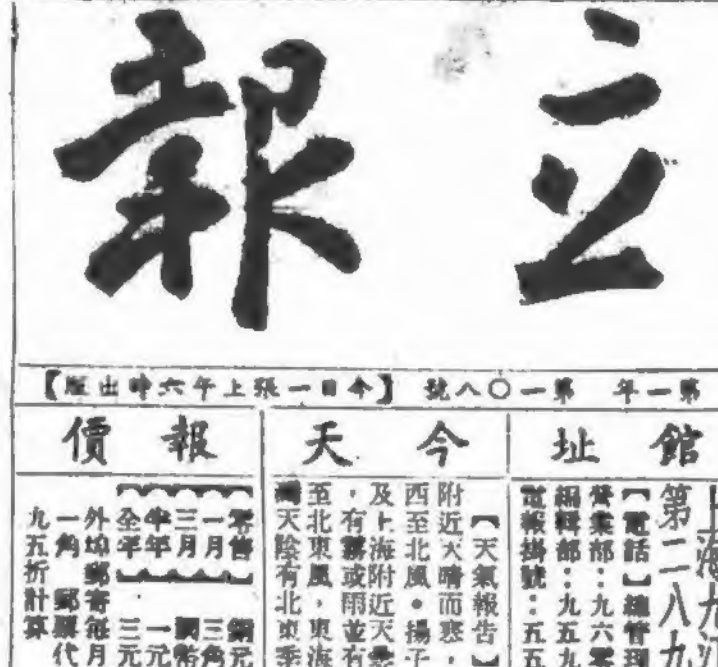 立報
第一年 第一〇八號 【今日一張上午六時出版】
館址
上海九江
第二八九
【電話】總管理
營業部：九六零
編輯部：九五九
電報掛號：五五
今天
【天氣報告】
附近天晴而寒，
西至北風。揚子
及上海附近天曇
，有霧或雨並有
至北東風，東海
天陰有北東季
報價
零售 銅元
一月 三角
三月
半年 一元
全年 三元
外埠郵寄每月
一角 郵票代
九五折計算